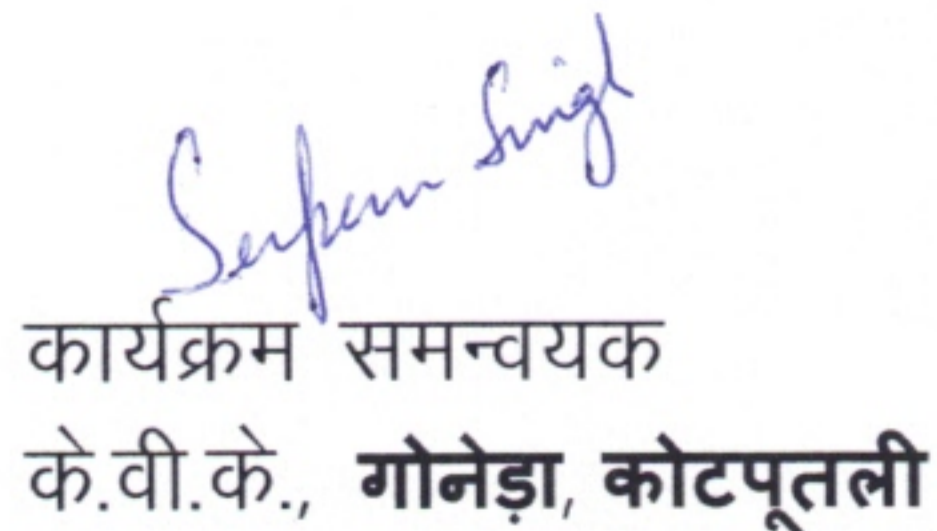 Singh
कार्यक्रम समन्वयक
के.वी.के., गोनेड़ा, कोटपूतली